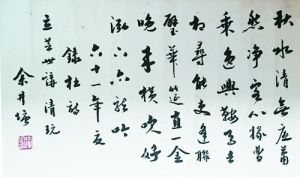 秋水清無底蕭
然净客心掾曹
乘逸興鞍馬去
相尋能吏逢聯
璧華筵直一金
晚来橫吹好
泓下亦龍吟
六十一年夏
錄杜詩
世講清玩
余井塘